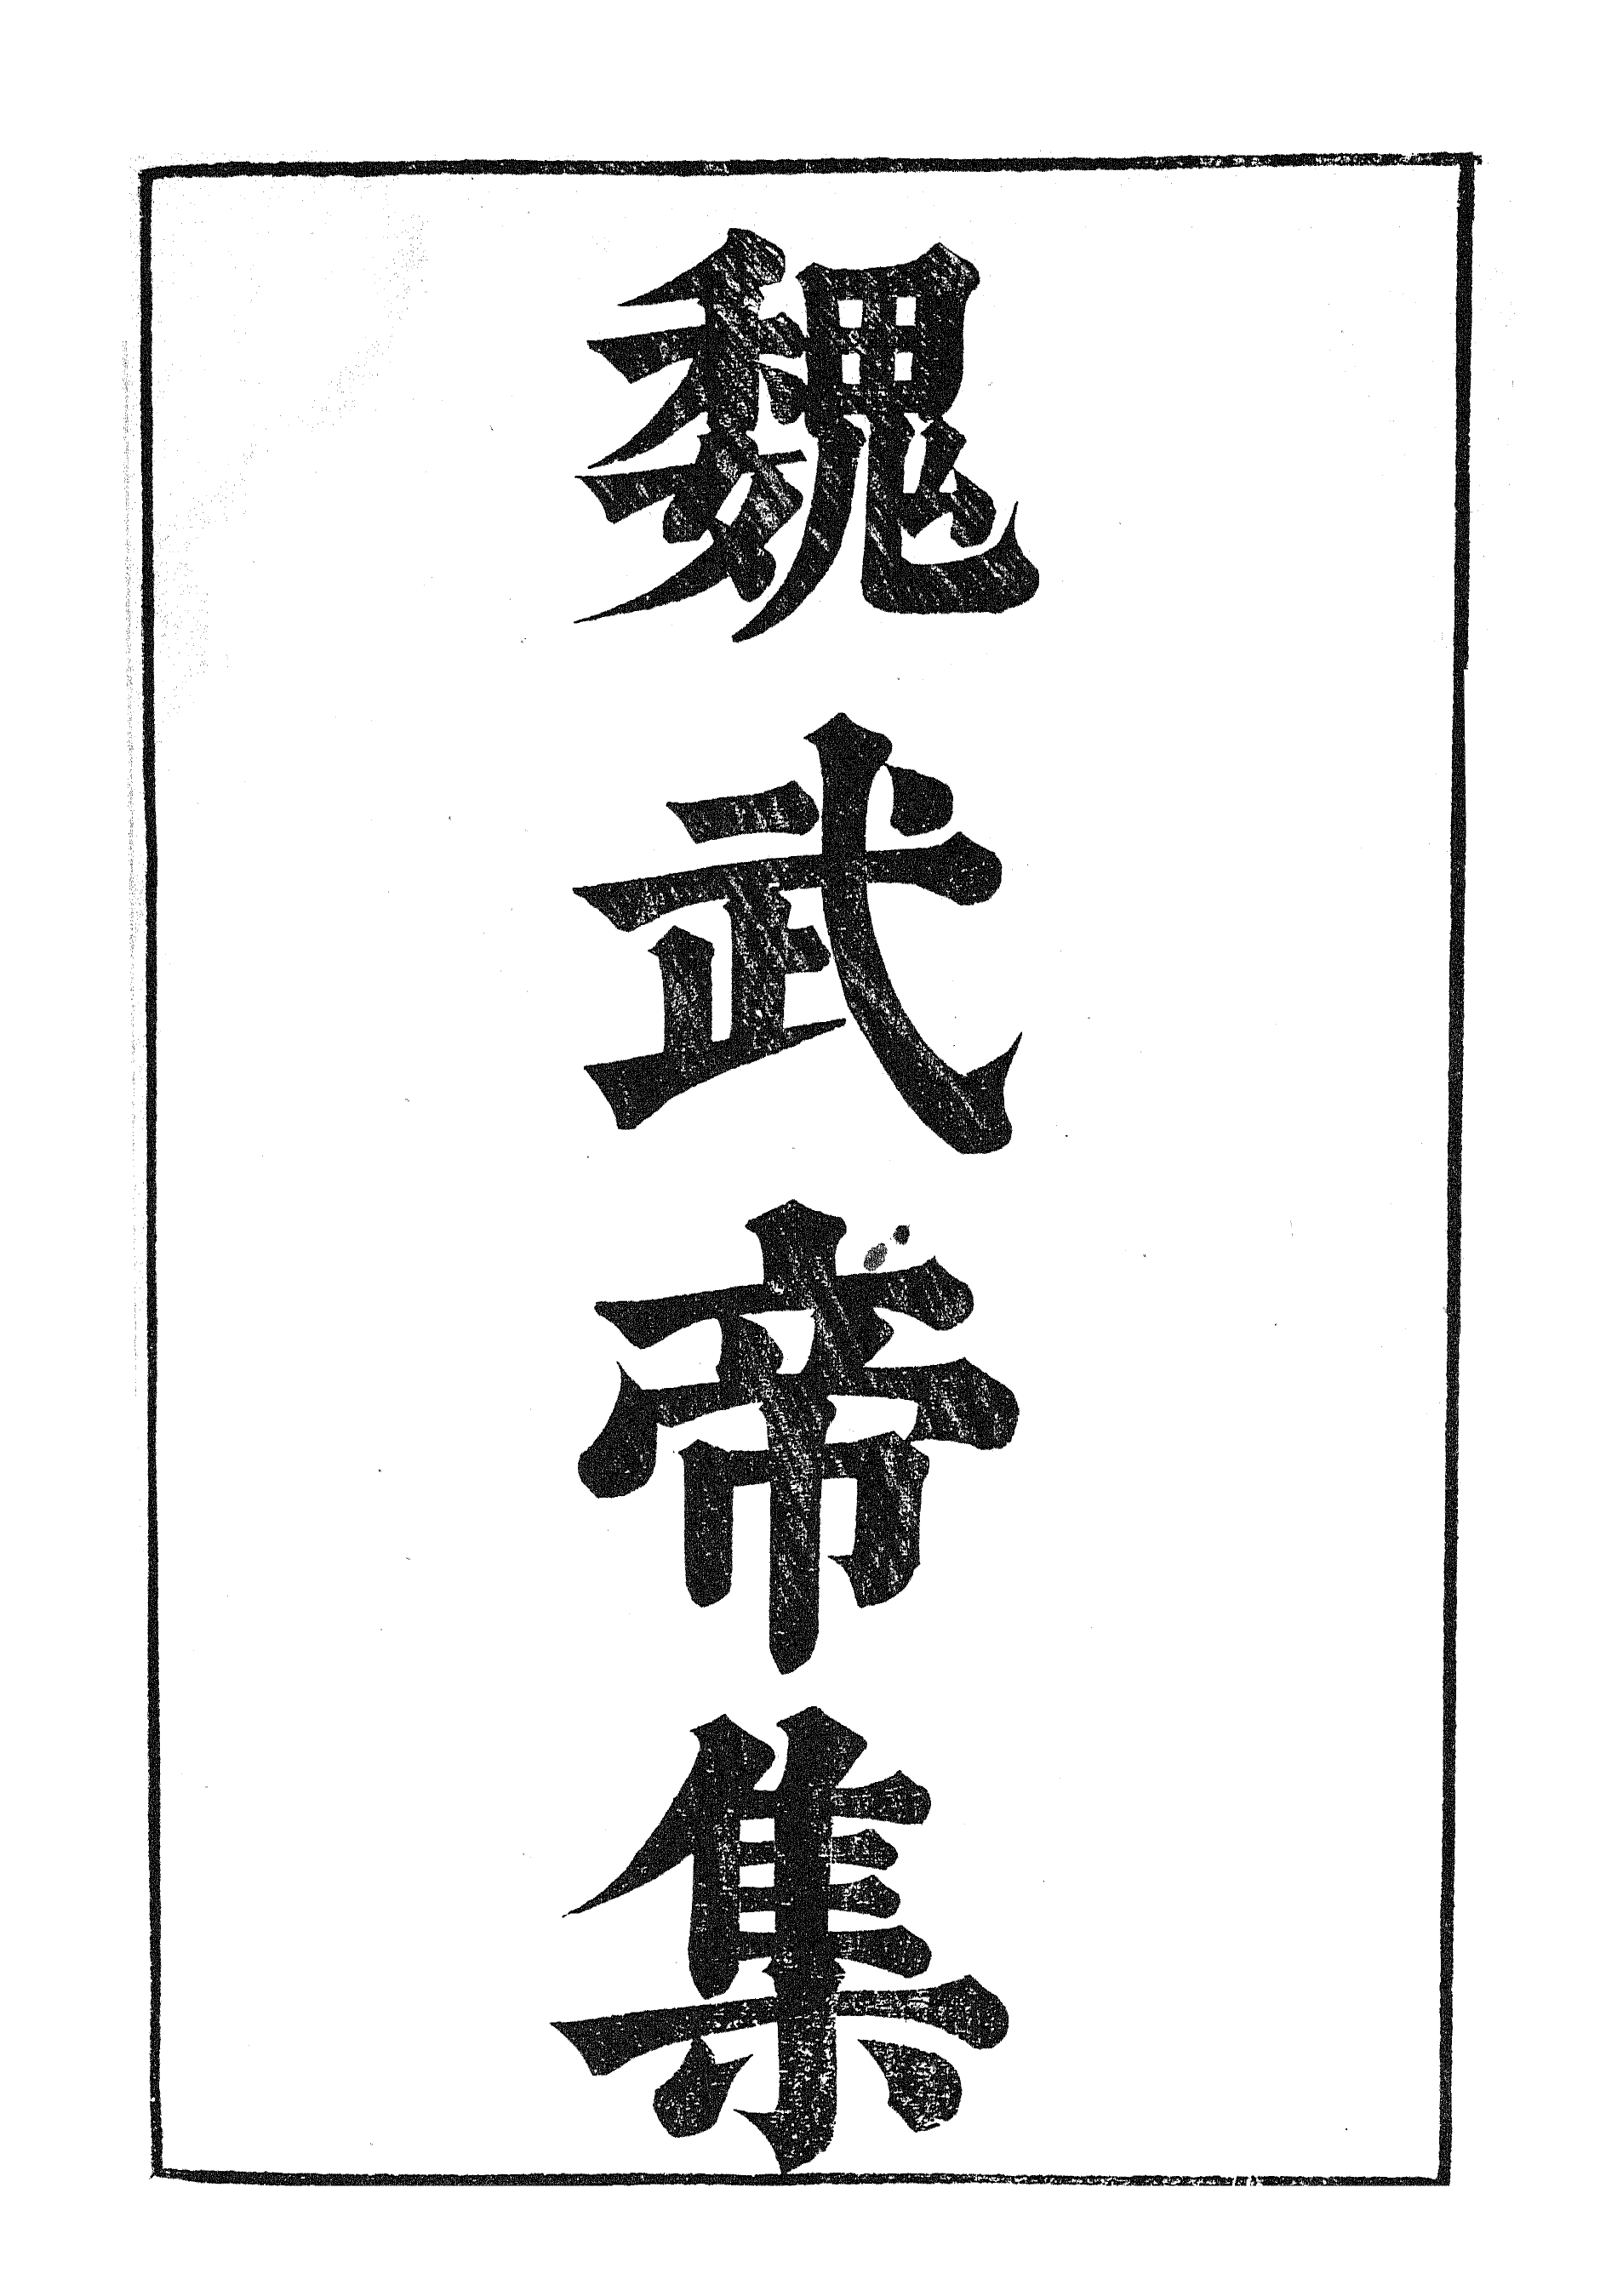 魏武帝集